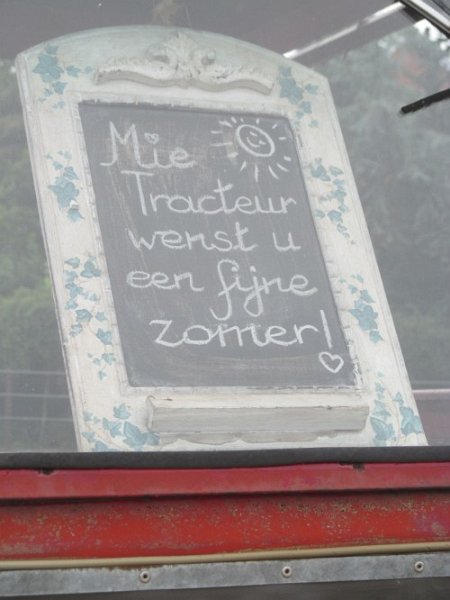 Mie
Tracteur
wenst u
een fijne
zomer!